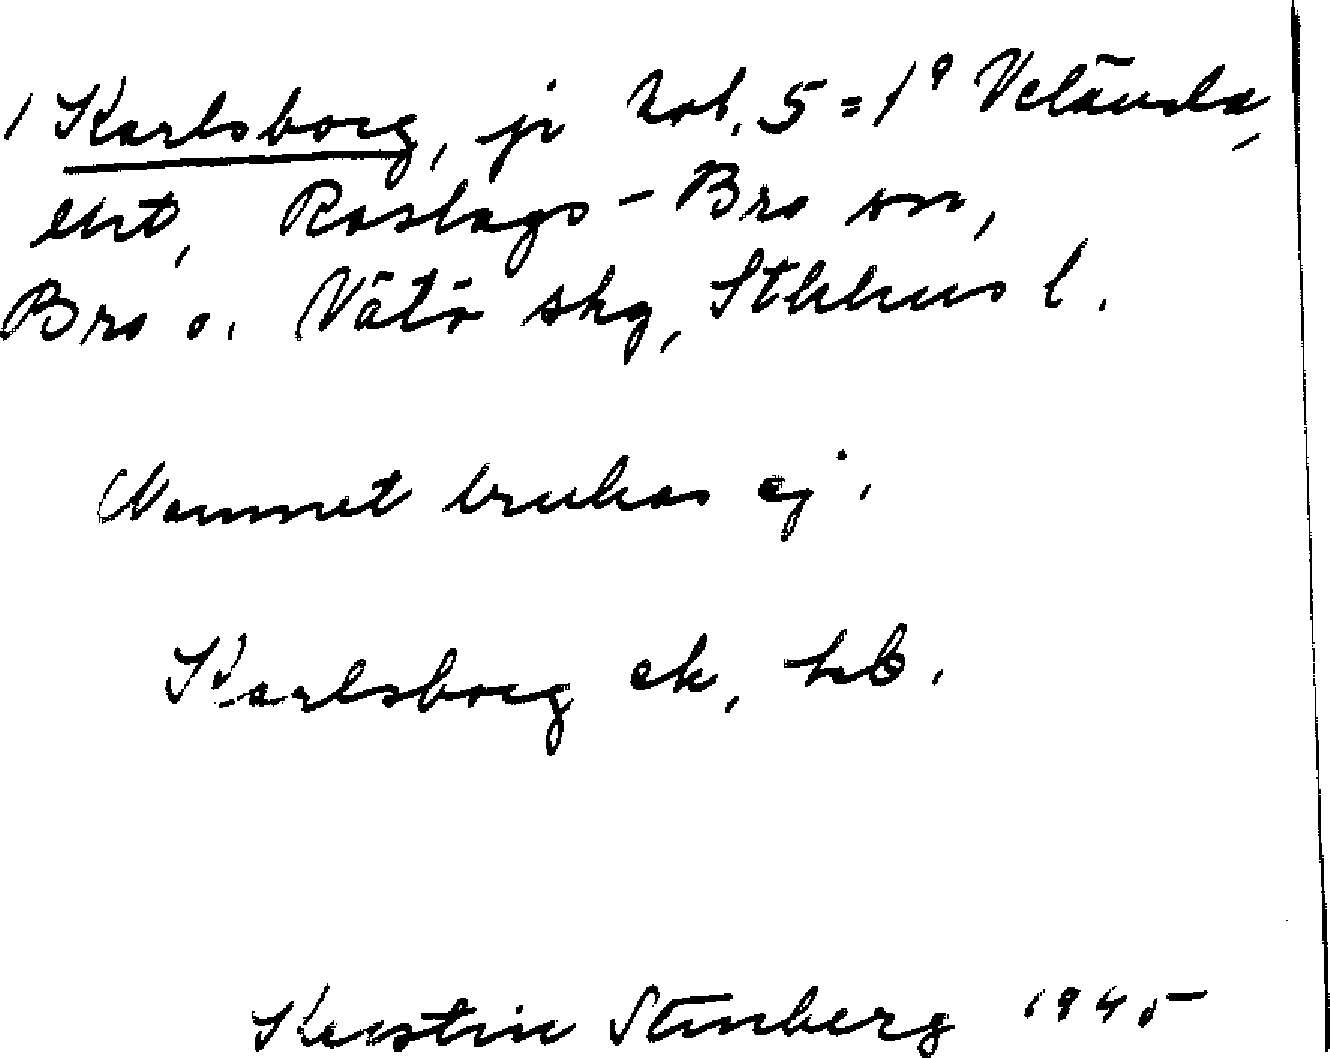 1 Karlsborg, jr 5 = 1⁹
Roslags-Bro sn,
Bro o. Vätö skg, Sthlms l.
Namnet brukas ej.
Karlsborg ek,
Kerstin Stenberg 1945